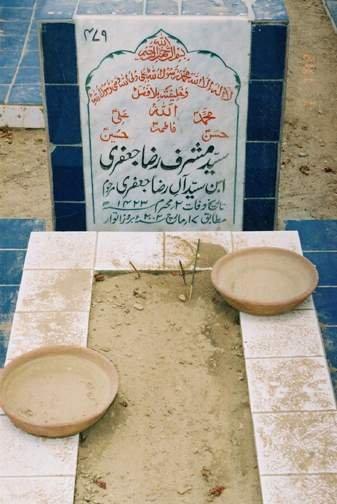 بسم الله الرحمن الرحیم
لا الہ الا اللہ محمد رسول اللہ علی ولی اللہ وصی رسول اللہ
وخلیفتہ بلا فصل
اللہ
محمدؐ علیؑ
فاطمہؑ
حسنؑ حسینؑ
سید مشرف رضا جعفری
ابن سید آل رضا جعفری مرحوم
تاریخ وفات ۲ محرم ۱۴۲۳ھ
مطابق ۱۷ مارچ ۲۰۰۲ء بروز اتوار